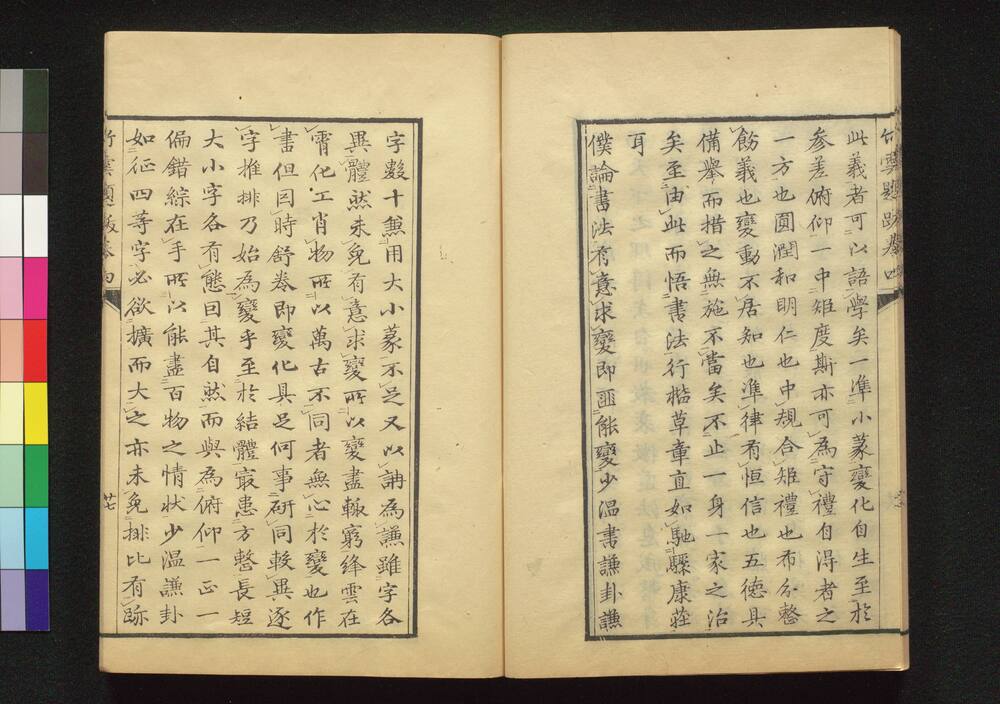 竹雲題跋卷四
此義者可以語學矣一準小篆變化自生至於
參差俯仰一中矩度斯亦可為守禮自得者之
一方也圓潤和明仁也中規合矩禮也布分整
飭義也變動不居知也準律有恒信也五德具
備舉而措之無施不當矣不止一身一家之治
矣至由此而悟書法行楷草章直如馳驟康莊
耳
僕論書法有意求變即匪能變少温書謙卦謙
字數十無用大小篆不足又以講為謙雖字各
異體然未免有意求變所以變盡輙窮絳雲在
霄化工肖物所以萬古不同者無心於變也作
書但因時舒卷即變化具足何事研同較異逐
字推排乃始為變乎至於結體最患方整長短
大小字各有態因其自然而與為俯仰一正一
偏錯綜在手所以能盡百物之情狀少温謙卦
如征四等字必欲擴而大之亦未免排比有跡
竹雲題跋卷四
廿七